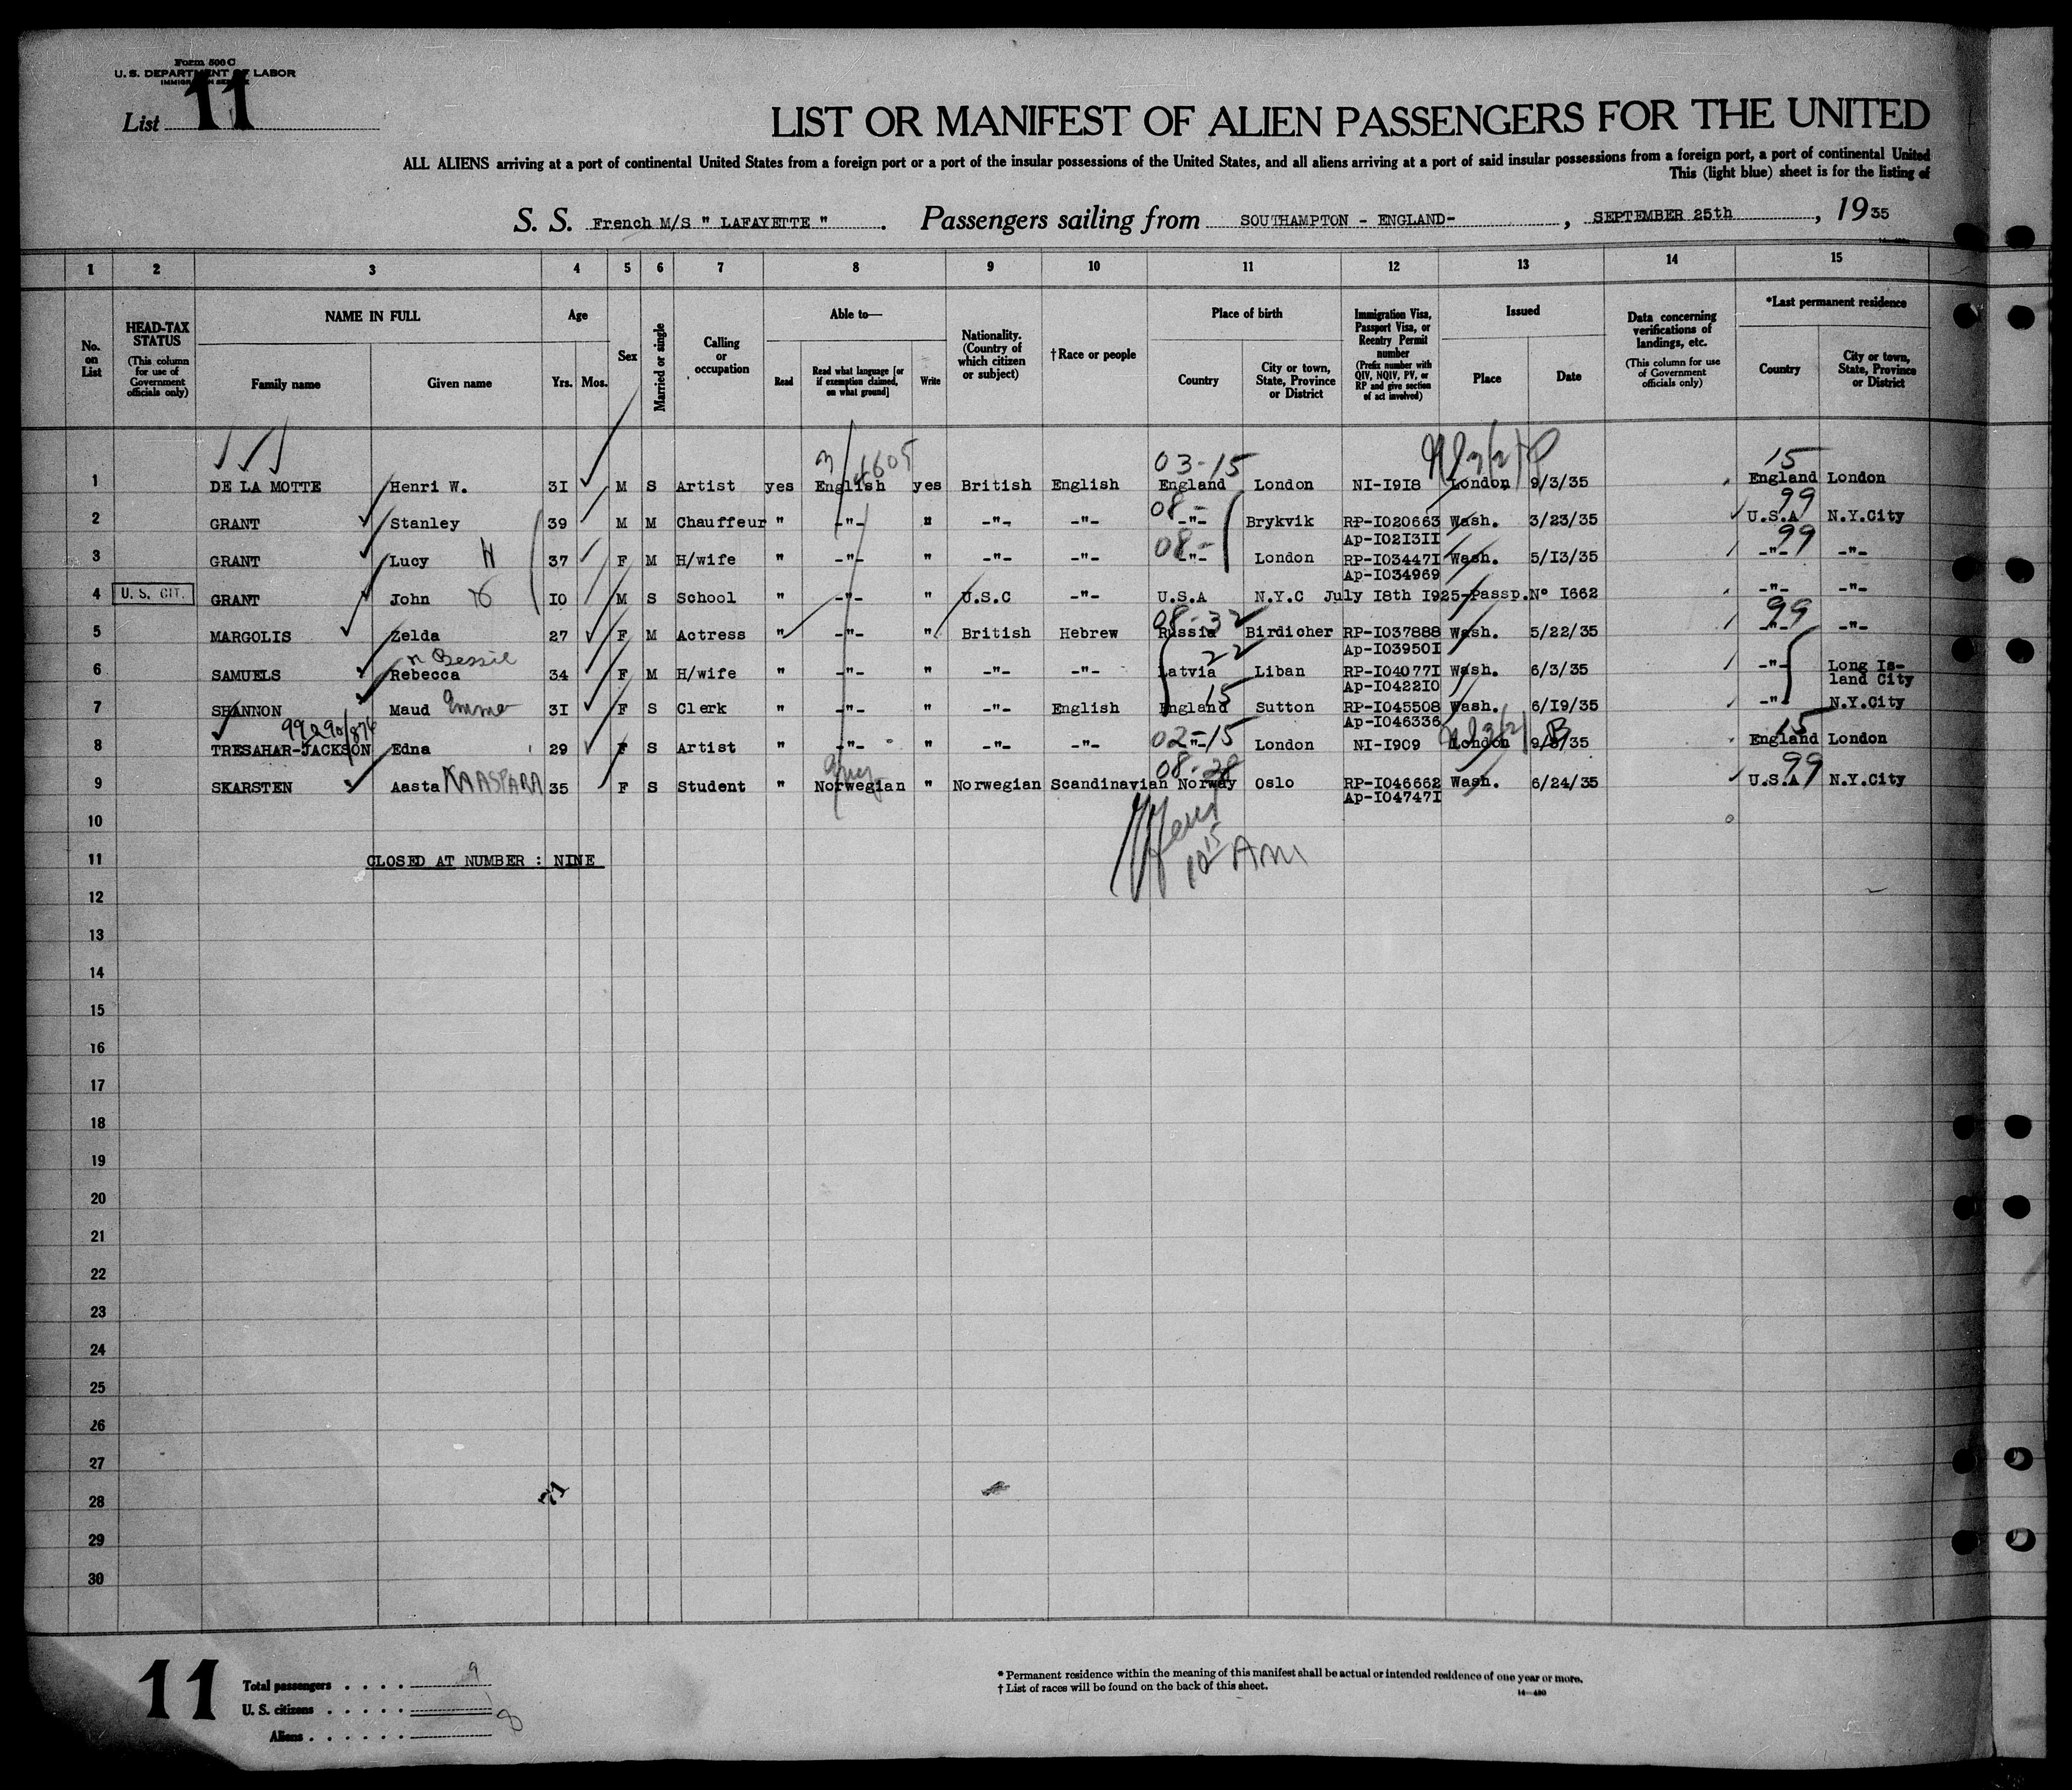 Form 500 C
U. S. DEPARTMENT OF LABOR
List 11
LIST OR MANIFEST OF ALIEN PASSENGERS FOR THE UNITED
ALL ALIENS arriving at a port of continental United States from a foreign port or a port of the insular possessions of the United States, and all aliens arriving at a port of said insular possessions from a foreign port, a port of continental United
This (light blue) sheet is for the listing of
S. S. French M/S " LAFAYETTE " . Passengers sailing from SOUTHAMPTON - ENGLAND- , SEPTEMBER 25th , 1935
1 2 3 4 5 6 7 8 9 10 11 12 13 14 15
No. on List
HEAD-TAX STATUS (This column for use of Government officials only)
NAME IN FULL
Family name Given name
Age
Yrs. Mos.
Sex
Married or single
Calling or occupation
Able to—
Read
Read what language [or if exemption claimed, on what ground]
Write
Nationality. (Country of which citizen or subject)
†Race or people
Place of birth
Country
City or town, State, Province or District
Immigration Visa, Passport Visa, or Reentry Permit number (Prefix number with QIV, NQIV, PV, or RP and give section of act involved)
Issued
Place Date
Data concerning verifications of landings, etc. (This column for use of Government officials only)
*Last permanent residence
Country
City or town, State, Province or District
03-15 15
1 DE LA MOTTE Henri W. 31 M S Artist yes English yes British English England London NI-I918 London 9/3/35 England London
08- 99
2 GRANT Stanley 39 M M Chauffeur " -"- " -"- -"- -"- Brykvik RP-I020663 Wash. 3/23/35 U.S.A N.Y.City
Ap-I02I3II
08- 99
3 GRANT Lucy H 37 F M H/wife " -"- " -"- -"- -"- London RP-I03447I Wash. 5/I3/35 -"- -"-
Ap-I034969
4 U. S. CIT. GRANT John 10 M S School " -"- " U.S.C -"- U.S.A N.Y.C July I8th I925-Passp.N° I662 -"- -"-
08-32 99
5 MARGOLIS Zelda 27 F M Actress " -"- " British Hebrew Russia Birdicher RP-I037888 Wash. 5/22/35 -"- -"-
Ap-I03950I
Bessie 22
6 SAMUELS Rebecca 34 F M H/wife " -"- " -"- -"- Latvia Liban RP-I04077I Wash. 6/3/35 -"- Long Is-
land City
Ap-I042210
15
7 SHANNON Maud Emma 31 F S Clerk " -"- " -"- English England Sutton RP-I045508 Wash. 6/I9/35 -"- N.Y.City
Ap-I046336
02-15 B 15
8 TRESAHAR-JACKSON Edna 29 F S Artist " -"- " -"- -"- -"- London NI-I909 London England London
08-28 99
9 SKARSTEN Aasta KAASPARA 35 F S Student " Norwegian " Norwegian Scandinavian Norway Oslo RP-I046662 Wash. 6/24/35 U.S.A N.Y.City
Ap-I04747I
10
10 15 AM
11 CLOSED AT NUMBER : NINE
12
13
14
15
16
17
18
19
20
21
22
23
24
25
26
27
28
71
29
30
11
Total passengers . . . . 9
U. S. citizens . . . . . 1
Aliens . . . . . . 8
* Permanent residence within the meaning of this manifest shall be actual or intended residence of one year or more.
† List of races will be found on the back of this sheet.
14—480